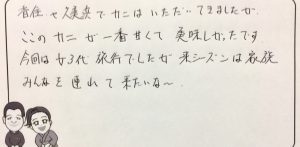 香住や久美浜でカニはいただいてきましたが
ここのカニが一番甘くて美味しかったです
今回は女3代旅行でしたが来シーズンは家族
みんなを連れて来たいな〜.